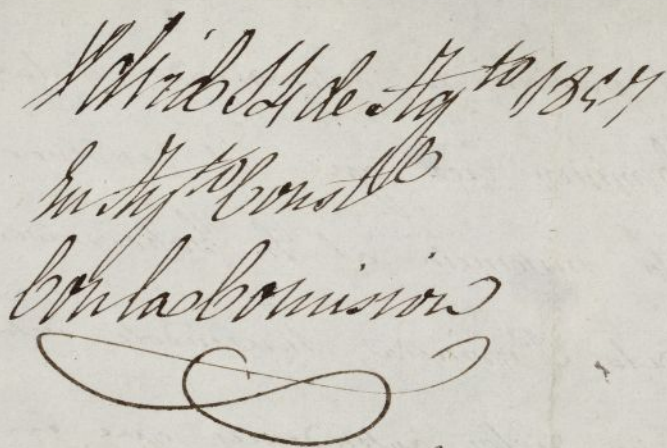 Madrid 14 de Agto 1857
En Aytº Constl
Con la Comision